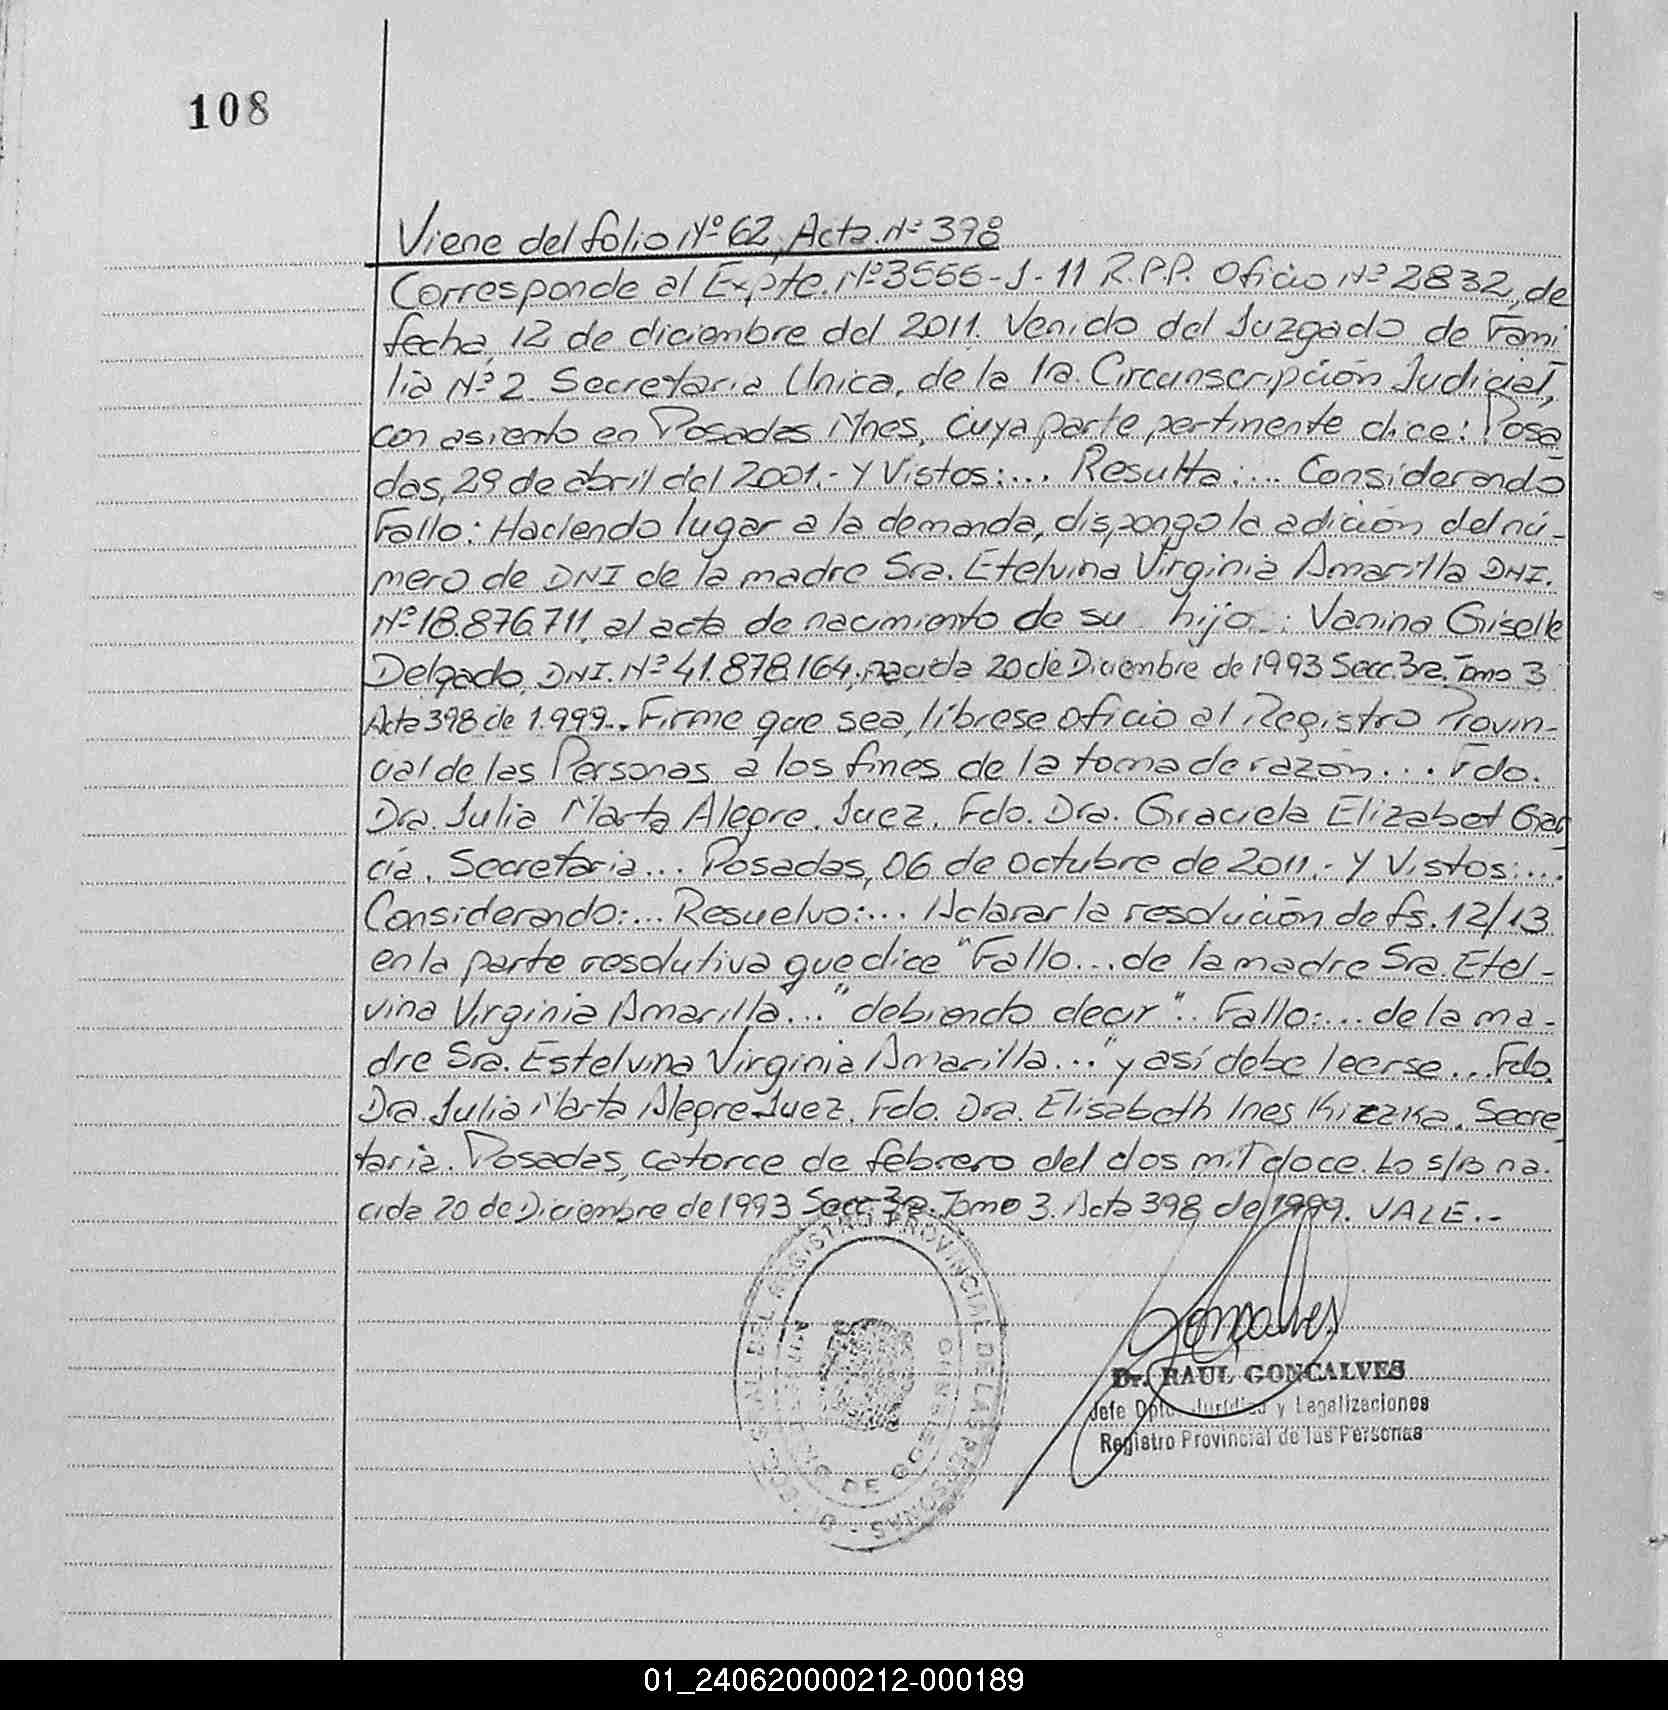 108
Viene del folio Nº 62, Acta Nº 398
Corresponde al Expte. Nº 3566-J-11 R.P.P. Oficio Nº 2832, de
fecha, 12 de diciembre del 2011. Venido del Juzgado de Fami
lia Nº 2 Secretaria Unica, de la 1ra. Circunscripción Judicial,
con asiento en Posadas Mnes, cuya parte pertinente dice: Posa
das, 29 de abril del 2001.- Y Vistos:... Resulta:... Considerando
Fallo: Haciendo lugar a la demanda, dispongo la adición del nú-
mero de DNI de la madre Sra. Etelvina Virginia Amarilla DNI.
Nº 18.876.711, al acta de nacimiento de su hijo: Vanina Giselle
Delgado, DNI. Nº 41.878.164, nacida 20 de Diciembre de 1993 Secc. 3ra. Tomo 3
Acta 398 de 1.999.. Firme que sea, líbrese oficio al Registro Provin-
cial de las Personas a los fines de la toma de razón... Fdo.
Dra. Julia Marta Alegre. Juez. Fdo. Dra. Graciela Elizabet Gar
cía. Secretaria... Posadas, 06 de octubre de 2011.- Y Vistos:...
Considerando:... Resuelvo:... Aclarar la resolución de fs. 12/13
en la parte resolutiva que dice "Fallo... de la madre Sra. Etel-
vina Virginia Amarilla..." debiendo decir ".. Fallo:... de la ma-
dre Sra. Estelvina Virginia Amarilla..." y así debe leerse... Fdo.
Dra. Julia Marta Alegre Juez. Fdo. Dra. Elisabeth Ines Kizzka. Secre
taria. Posadas, catorce de febrero del dos mil doce. Lo s/b na.
cida 20 de Diciembre de 1993 Secc. 3ra. Tomo 3. Acta 398 de 1999. VALE.-
DEL REGISTRO PROVINCIAL DE LAS PERSONAS
Goncalves
Dr. RAUL GONCALVES
Jefe Dpto. Jurídico y Legalizaciones
Registro Provincial de las Personas
01_240620000212-000189